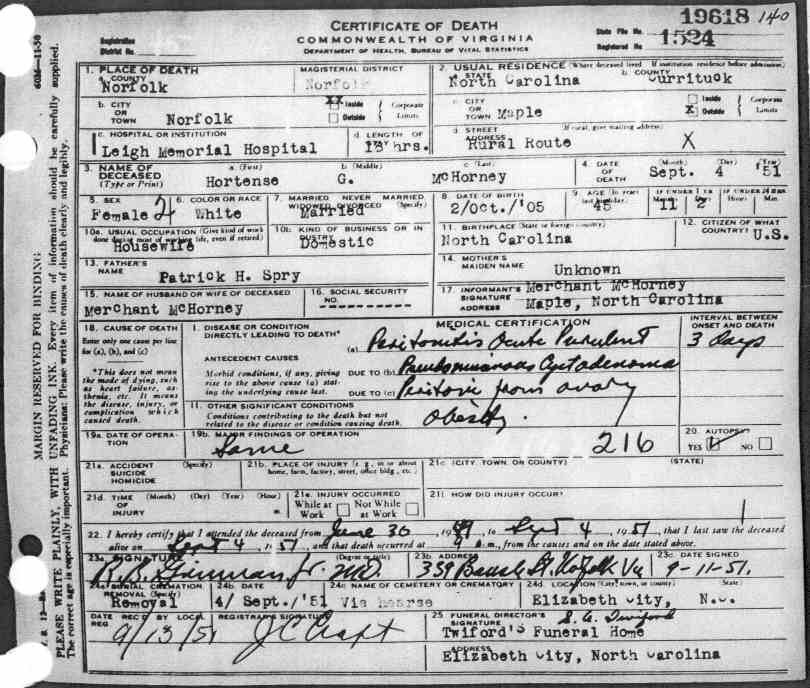 19618 140
CERTIFICATE OF DEATH
COMMONWEALTH OF VIRGINIA
DEPARTMENT OF HEALTH, BUREAU OF VITAL STATISTICS
Registration District No.
State File No.
Registered No. 1524
1. PLACE OF DEATH
a. COUNTY Norfolk
MAGISTERIAL DISTRICT Norfolk
2. USUAL RESIDENCE (Where deceased lived. If institution residence before admission)
a. STATE North Carolina
b. COUNTY Currituck
b. CITY OR TOWN Norfolk
XX Inside Outside Corporate Limits
c. CITY OR TOWN Maple
Inside X Outside Corporate Limits
c. HOSPITAL OR INSTITUTION Leigh Memorial Hospital
d. LENGTH OF hrs.
d. STREET ADDRESS (If rural, give mailing address) Rural Route X
3. NAME OF DECEASED (Type or Print)
a. (First) Hortense
b. (Middle) G.
c. (Last) McHorney
4. DATE OF DEATH (Month) (Day) (Year) Sept. 4 '51
5. SEX Female 2
6. COLOR OR RACE White
7. MARRIED NEVER MARRIED WIDOWED DIVORCED (Specify) Married
8. DATE OF BIRTH 2/Oct./'05
9. AGE (In years last birthday) 45
IF UNDER 1 YR 11 2
IF UNDER 24 HRS Hours Min.
10a. USUAL OCCUPATION (Give kind of work done during most of working life, even if retired) Housewife
10b. KIND OF BUSINESS OR INDUSTRY Domestic
11. BIRTHPLACE (State or foreign country) North Carolina
12. CITIZEN OF WHAT COUNTRY? U.S.
13. FATHER'S NAME Patrick H. Spry
14. MOTHER'S MAIDEN NAME Unknown
15. NAME OF HUSBAND OR WIFE OF DECEASED Merchant McHorney
16. SOCIAL SECURITY NO. ---------
17. INFORMANT'S SIGNATURE Merchant McHorney
ADDRESS Maple, North Carolina
18. CAUSE OF DEATH
Enter only one cause per line for (a), (b), and (c)
*This does not mean the mode of dying, such as heart failure, asthenia, etc. It means the disease, injury, or complication which caused death.
MEDICAL CERTIFICATION
I. DISEASE OR CONDITION DIRECTLY LEADING TO DEATH*
(a) Peritonitis Acute Purulent
INTERVAL BETWEEN ONSET AND DEATH
3 days
ANTECEDENT CAUSES
Morbid conditions, if any, giving rise to the above cause (a) stating the underlying cause last.
DUE TO (b) Pseudomucinous Cystadenoma
DUE TO (c) from ovary
II. OTHER SIGNIFICANT CONDITIONS
Conditions contributing to the death but not related to the disease or condition causing death.
Obesity.
19a. DATE OF OPERATION
19b. MAJOR FINDINGS OF OPERATION
Same
216
20. AUTOPSY? YES NO
21a. ACCIDENT SUICIDE HOMICIDE (Specify)
21b. PLACE OF INJURY (e.g., in or about home, farm, factory, street, office bldg., etc.)
21c. (CITY, TOWN, OR COUNTY) (STATE)
21d. TIME OF INJURY (Month) (Day) (Year) (Hour) m
21e. INJURY OCCURRED While at Work Not While at Work
21f. HOW DID INJURY OCCUR?
22. I hereby certify that I attended the deceased from June 30, 1949 to Sept 4, 1951, that I last saw the deceased
alive on Sept 4, 1951, and that death occurred at 9 a.m., from the causes and on the date stated above.
23a. SIGNATURE (Degree or title) Jr. MD
23b. ADDRESS 339 St. Norfolk Va
23c. DATE SIGNED 9-11-51.
24a. BURIAL, CREMATION REMOVAL (Specify) Removal
24b. DATE 4/Sept./'51
24c. NAME OF CEMETERY OR CREMATORY Via hearse
24d. LOCATION (City, town, or county) (State) Elizabeth City, N.C.
DATE REC'D BY LOCAL REG. 9/13/51
REGISTRAR'S SIGNATURE
25. FUNERAL DIRECTOR'S SIGNATURE Twiford
Twiford's Funeral Home
ADDRESS Elizabeth City, North Carolina
MARGIN RESERVED FOR BINDING
PLEASE WRITE PLAINLY, WITH UNFADING INK. Every item of information should be carefully supplied.
The correct age is especially important. Physicians: Please write the causes of death clearly and legibly.